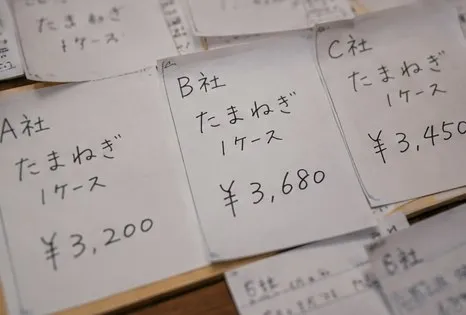 たまねぎ
1ケース
A社
たまねぎ
1ケース
¥3,200
B社
たまねぎ
1ケース
¥3,680
C社
たまねぎ
1ケース
¥3,450
5社
6社